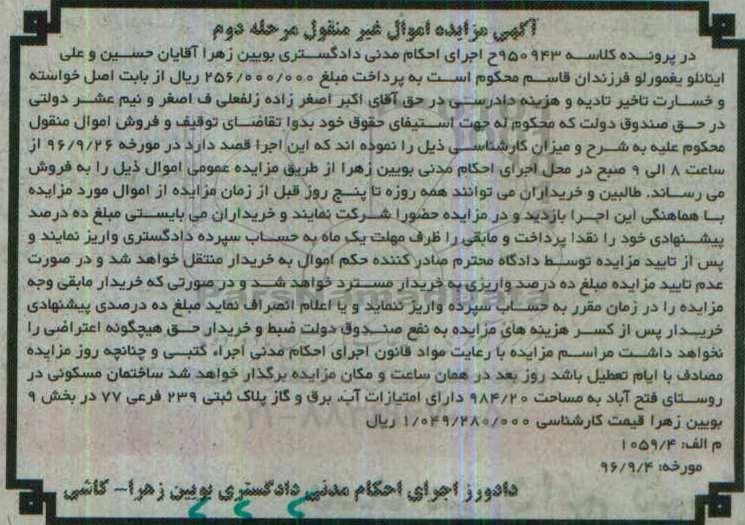 آگهی مزایده اموال غیر منقول مرحله دوم
در پرونده کلاسه ۹۵۰۹۴۳ح اجرای احکام مدنی دادگستری بویین زهرا آقایان حسین و علی
اینانلو یغمورلو فرزندان قاسم محکوم است به پرداخت مبلغ ۲۵۶/۰۰۰/۰۰۰ ریال از بابت اصل خواسته
و خسارت تاخیر تادیه و هزینه دادرسی در حق آقای اکبر اصغر زاده زلفعلی ف اصغر و نیم عشر دولتی
در حق صندوق دولت که محکوم له جهت استیفای حقوق خود بدوا تقاضای توقیف و فروش اموال منقول
محکوم علیه به شرح و میزان کارشناسی ذیل را نموده اند که این اجرا قصد دارد در مورخه ۹۶/۹/۲۶ از
ساعت ۸ الی ۹ صبح در محل اجرای احکام مدنی بویین زهرا از طریق مزایده عمومی اموال ذیل را به فروش
می رساند. طالبین و خریداران می توانند همه روزه تا پنج روز قبل از زمان مزایده از اموال مورد مزایده
با هماهنگی این اجرا بازدید و در مزایده حضورا شرکت نمایند و خریداران می بایستی مبلغ ده درصد
پیشنهادی خود را نقدا پرداخت و مابقی را ظرف مهلت یک ماه به حساب سپرده دادگستری واریز نمایند و
پس از تایید مزایده توسط دادگاه محترم صادر کننده حکم اموال به خریدار منتقل خواهد شد و در صورت
عدم تایید مزایده مبلغ ده درصد واریزی به خریدار مسترد خواهد شد و در صورتی که خریدار مابقی وجه
مزایده را در زمان مقرر به حساب سپرده واریز ننماید و یا اعلام انصراف نماید مبلغ ده درصدی پیشنهادی
خریدار پس از کسر هزینه های مزایده به نفع صندوق دولت ضبط و خریدار حق هیچگونه اعتراضی را
نخواهد داشت مراسم مزایده با رعایت مواد قانون اجرای احکام مدنی اجراء کتبی و چنانچه روز مزایده
مصادف با ایام تعطیل باشد روز بعد در همان ساعت و مکان مزایده برگذار خواهد شد ساختمان مسکونی در
روستای فتح آباد به مساحت ۹۸۴/۲۰ دارای امتیازات آب، برق و گاز پلاک ثبتی ۲۳۹ فرعی ۷۷ در بخش ۹
بویین زهرا قیمت کارشناسی ۱/۰۴۹/۲۸۰/۰۰۰ ریال
م الف: ۱۰۵۹/۴
مورخه: ۹۶/۹/۴
دادورز اجرای احکام مدنی دادگستری بویین زهرا- کاشی